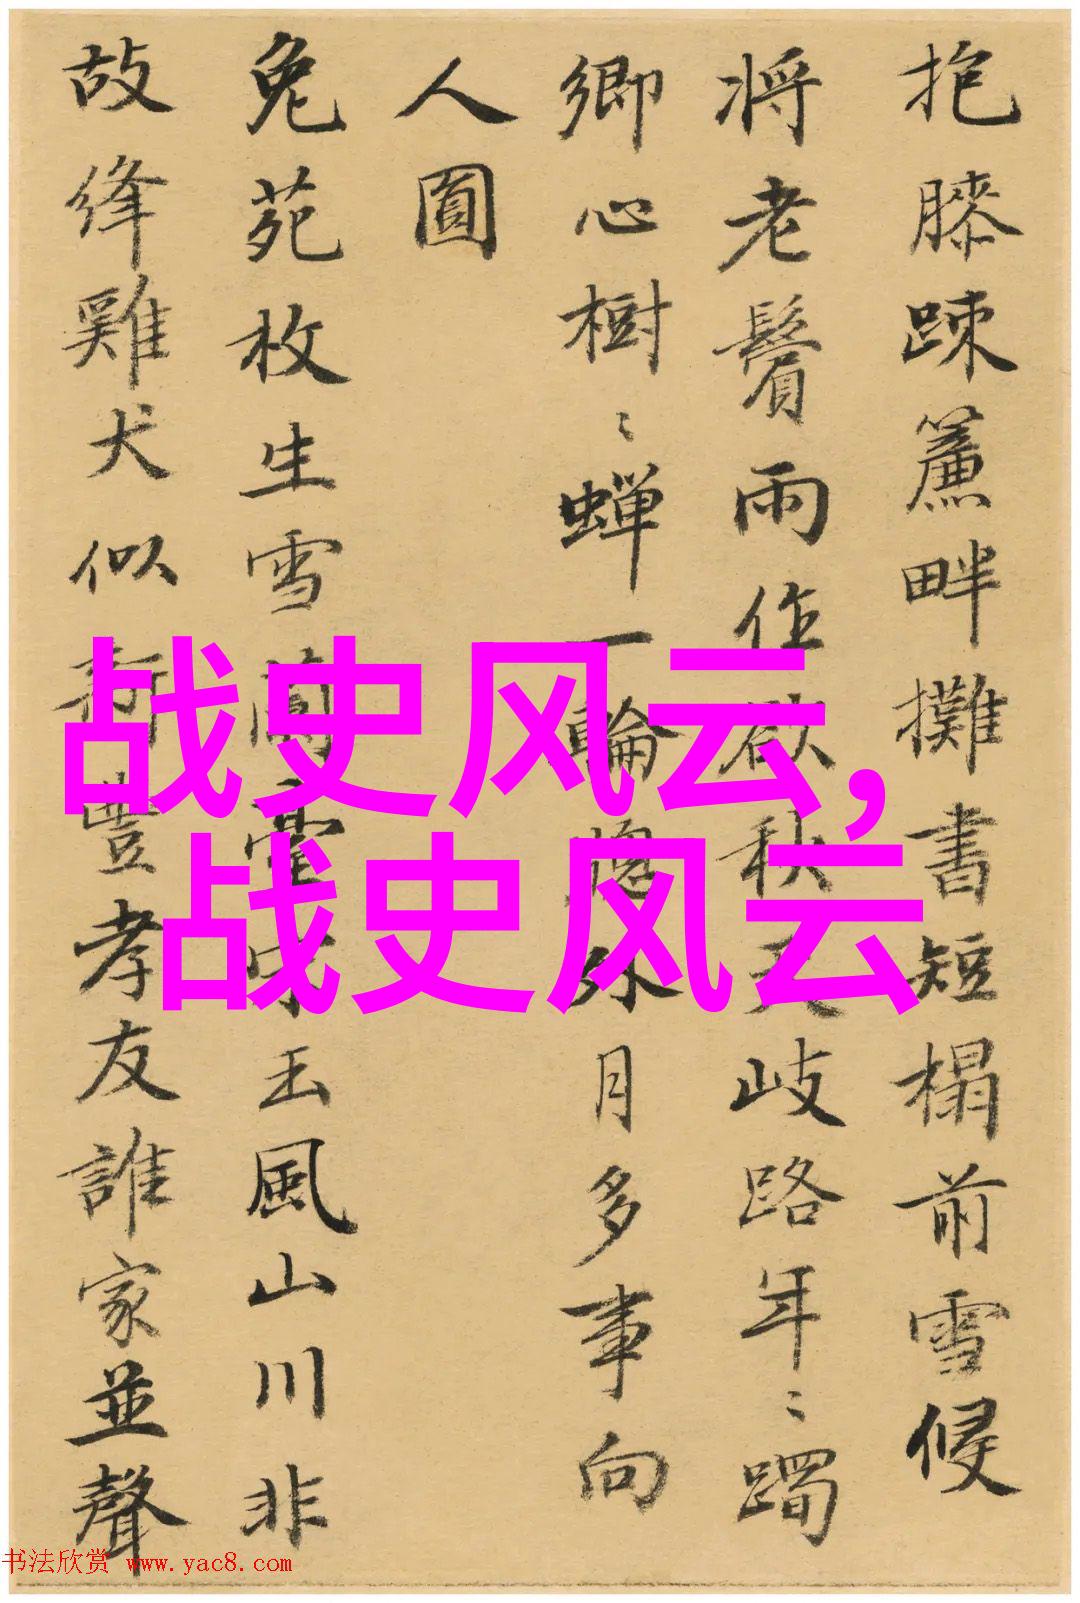 抱膝踈簾畔攤書短榻前雪侵
将老鬢雨作欲秋天岐路年〻躅
鄉心樹〻蟬一輪牕外月多事向
人圓
兔苑枚生雪蘭臺宋玉風山川非
故絳雞犬似新豐孝友誰家並聲
战史风云,
战史风云
书法欣赏 www.yac8.com